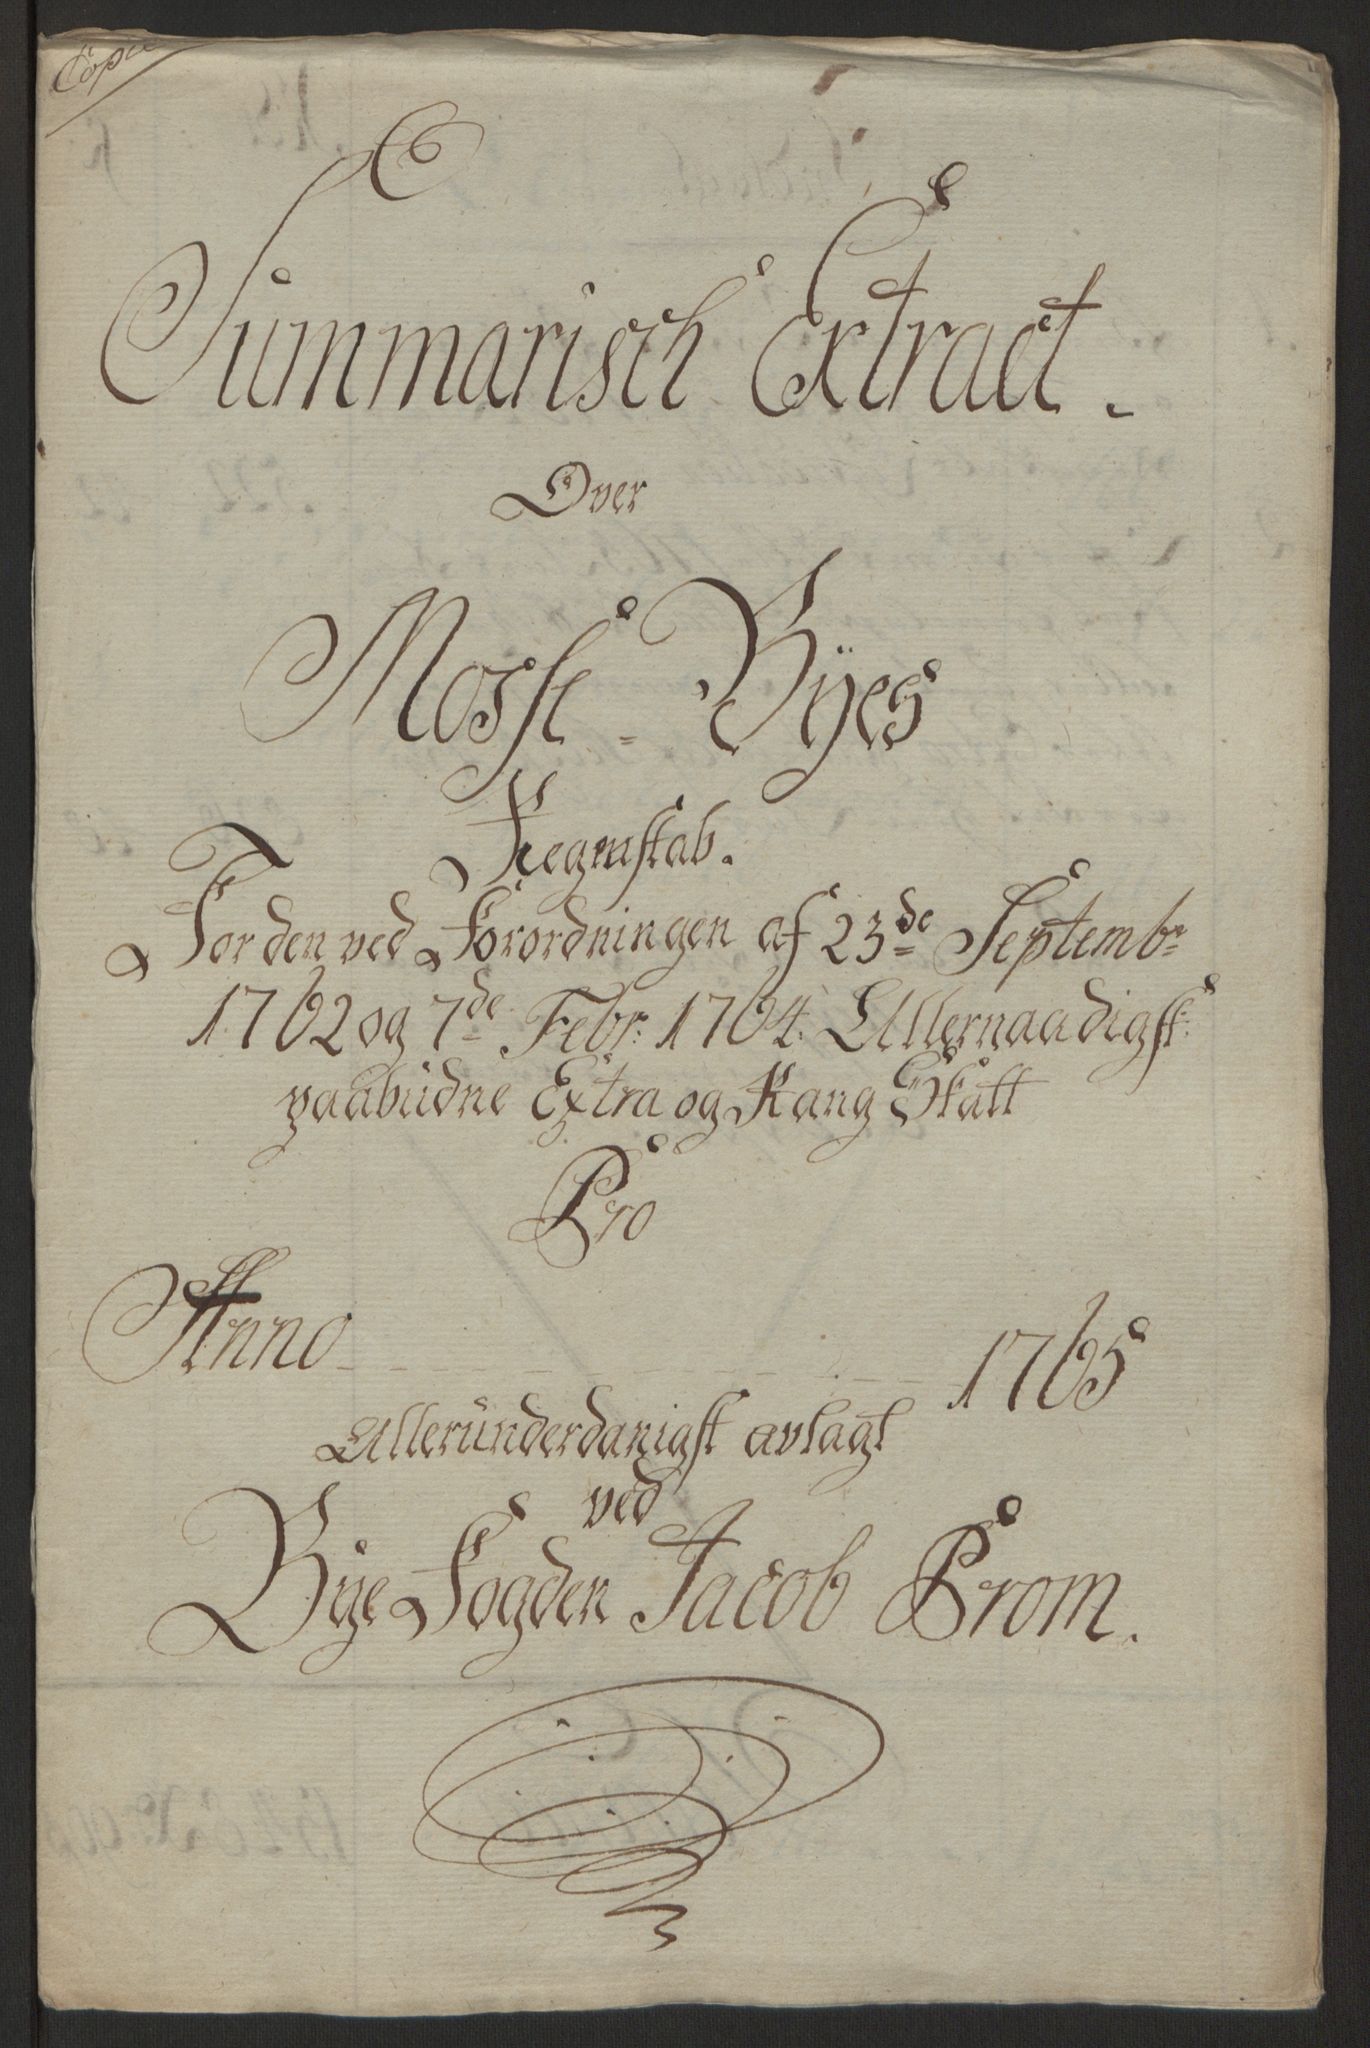 Copie
Summarisch Extract.
Over
Mosse-Byes
Regnskab.
For den ved Forordningen af 23de Septembr
1762 og 7de Febr: 1764. Allernaadigst
paabudne Extra og Rang Skatt
Pro
Anno 1765
Alleründerdanigst avlagt
ved
Bye Fogden Jacob Prom.